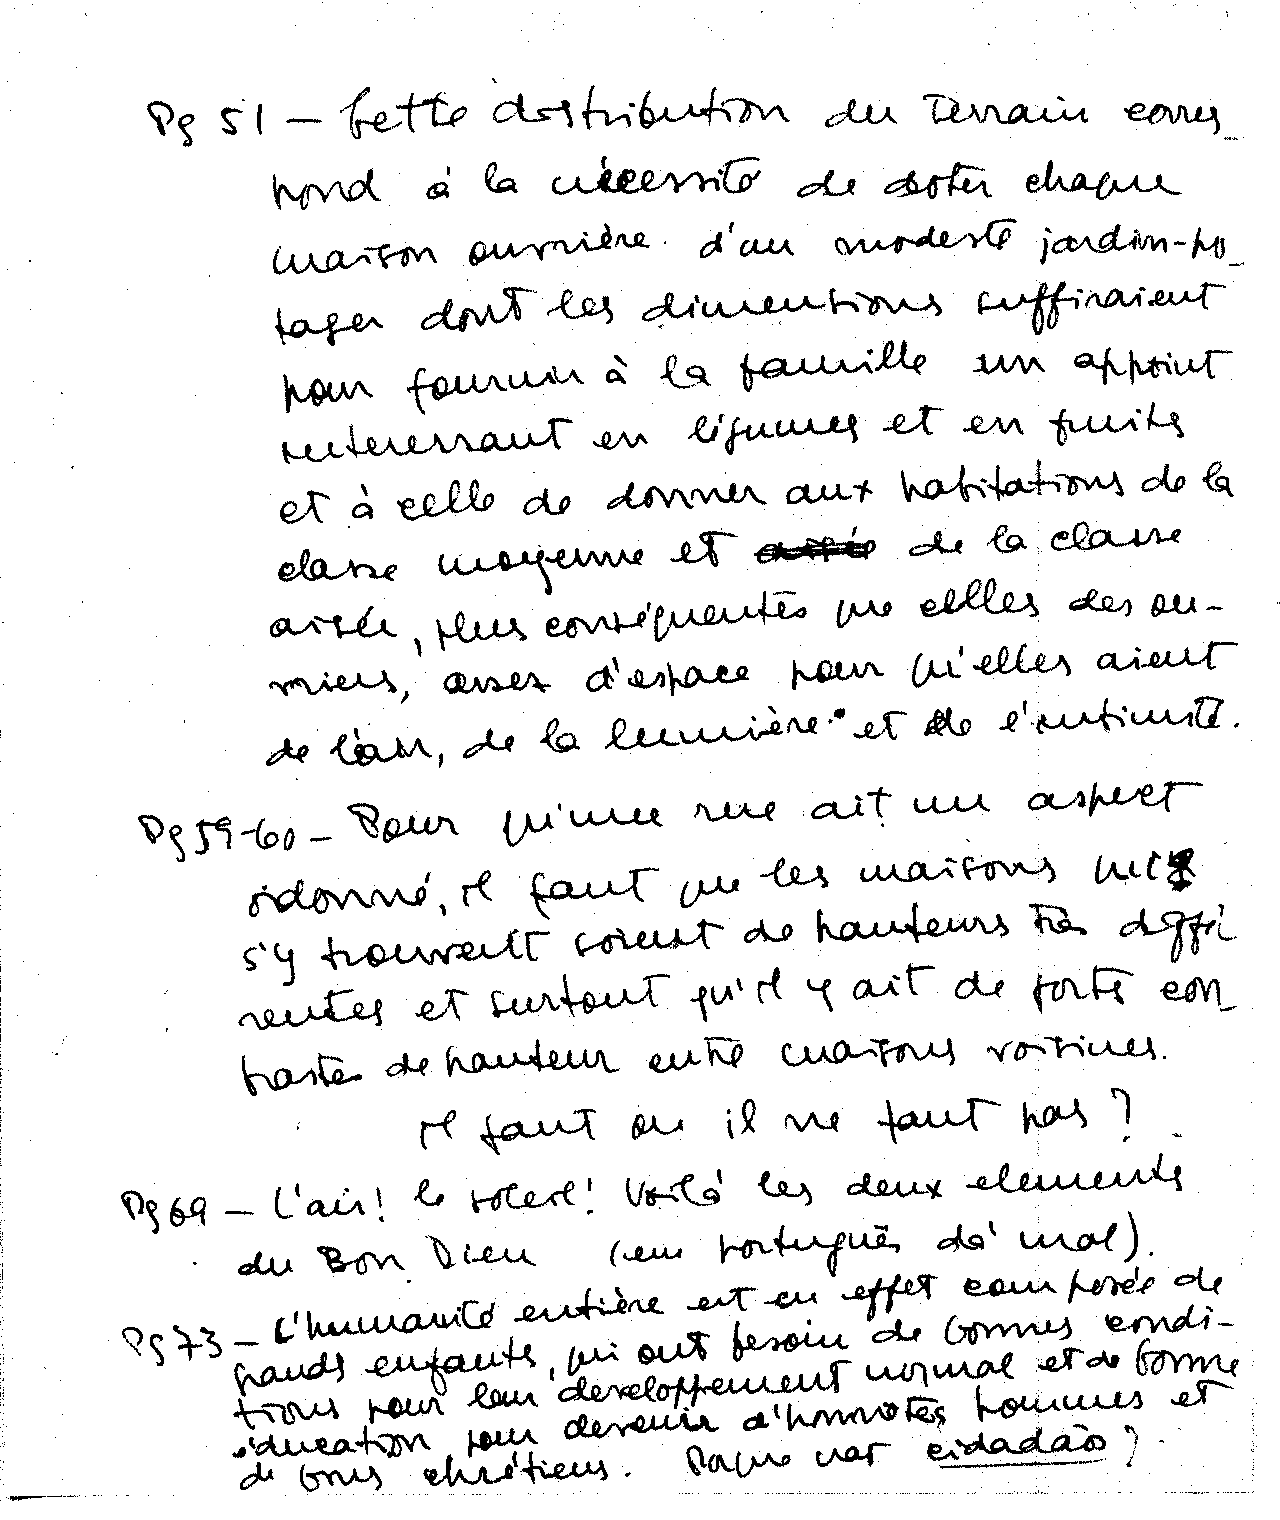 Pg 51 – Cette distribution du terrain corres_
pond à la nécessité de doter chaque
maison ouvrière d'un modeste jardin-po_
tager dont les dimentions suffiraient
pour fournir à la famille un appoint
interessant en légumes et en fruits
et à celle de donner aux habitations de la
classe moyenne et de la classe
aisée, plus conséquentes que celles des ou-
vriers, assez d'espace pour qu'elles aient
de l'air, de la lumière et de l'intimité.
Pg 59-60 – Pour qu'une rue ait un aspect
ordonné, il faut que les maisons qui
s'y trouvent soient de hauteurs très diffé
rentes et surtout qu'il y ait de forts con_
trastes de hauteur entre maisons voisines.
il faut ou il ne faut pas?
Pg 69 – L'air! le soleil! Voilá les deux elements
du Bon Dieu (em português dá mal).
Pg 73 – L'humanité entière est en effet composée de
grands enfants, qui ont besoin de bonnes condi-
tions pour leur developpement normal et de bonne
éducation pour devenir d'honnêtes hommes et
de bons chrétiens. Porque nao cidadãos?